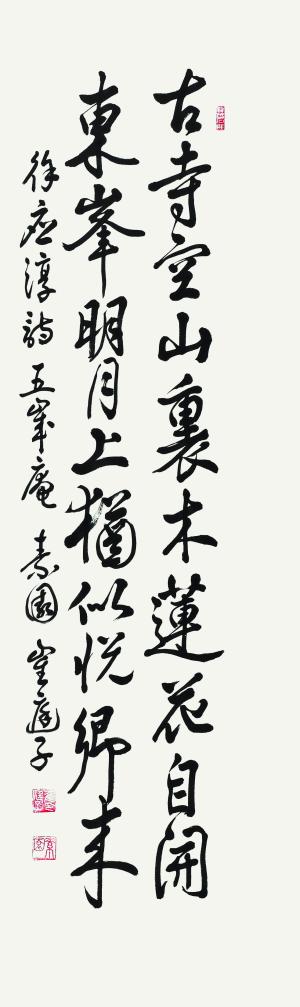 古寺空山裏木蓮花自開
東峯明月上猶似悅卿來
徐應淳詩 五峯庵 素園 崔庭子